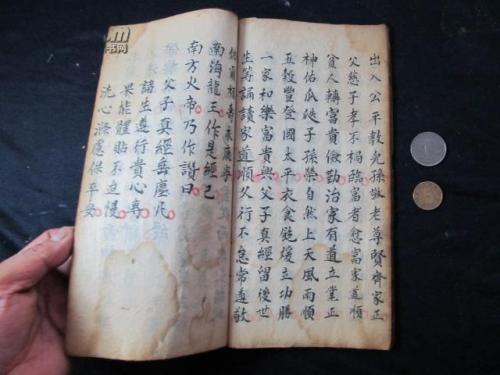 出入公平教兒孫敬老尊賢齊家正
父慈子孝不禍臨富者愈富家道順
貧人轉富貴儉勤治家有道立業正
神佑瓜瓞子孫榮自然上天風雨順
五穀豐登國太平衣食飽煖立功勝
一家和樂富貴興父子真經留後世
生等誦讀家道順父行不怠常遠敬
南海龍王作是經已
南方火帝乃作讚曰
父子真經垂塵凡
諸生遵行貴心專
果能體貼不違慢
洗心滌慮保平安
书网